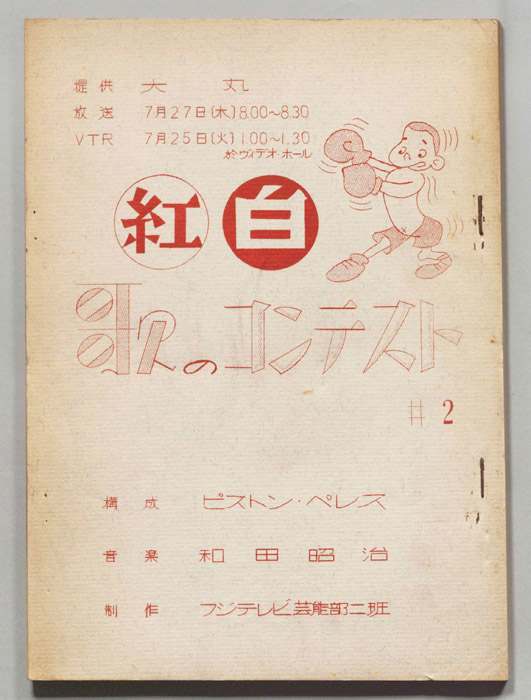 提供 大丸
放送 7月27日(木)8.00~8.30
VTR 7月25日(火)1.00~1.30
於ヴィデオ・ホール
紅白
歌のコンテスト
#2
構成 ピストン・ペレス
音楽 和田昭治
制作 フジテレビ芸能部二班